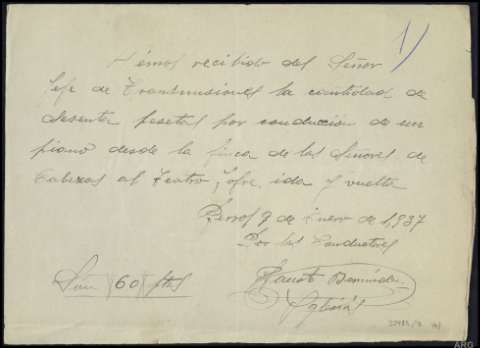 1)
Hemos recibido del Señor
Jefe de Transmisiones la cantidad de
sesenta pesetas por conducción de un
piano desde la finca de los Señores de
Cabezas al Teatro Jofre, ida y vuelta
Ferrol 9 de Enero de 1,937
Por los Conductores
Son (60) ptas
ARG